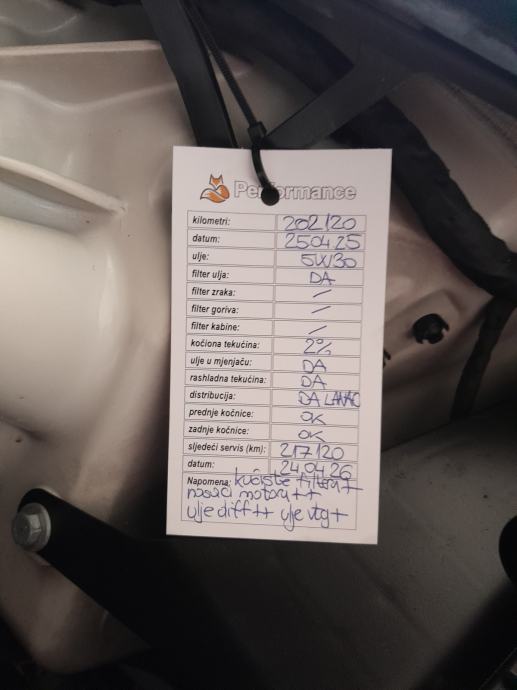 Performance
kilometri: 202120
datum: 250425
ulje: 5W30
filter ulja: DA
filter zraka: /
filter goriva: /
filter kabine: /
kočiona tekućina: 2%
ulje u mjenjaču: DA
rashladna tekućina: DA
distribucija: DA LANAC
prednje kočnice: OK
zadnje kočnice: OK
sljedeći servis (km): 217120
datum: 240426
Napomena: kućište filtera +
nosači motora ++
ulje diff ++ ulje vtg +